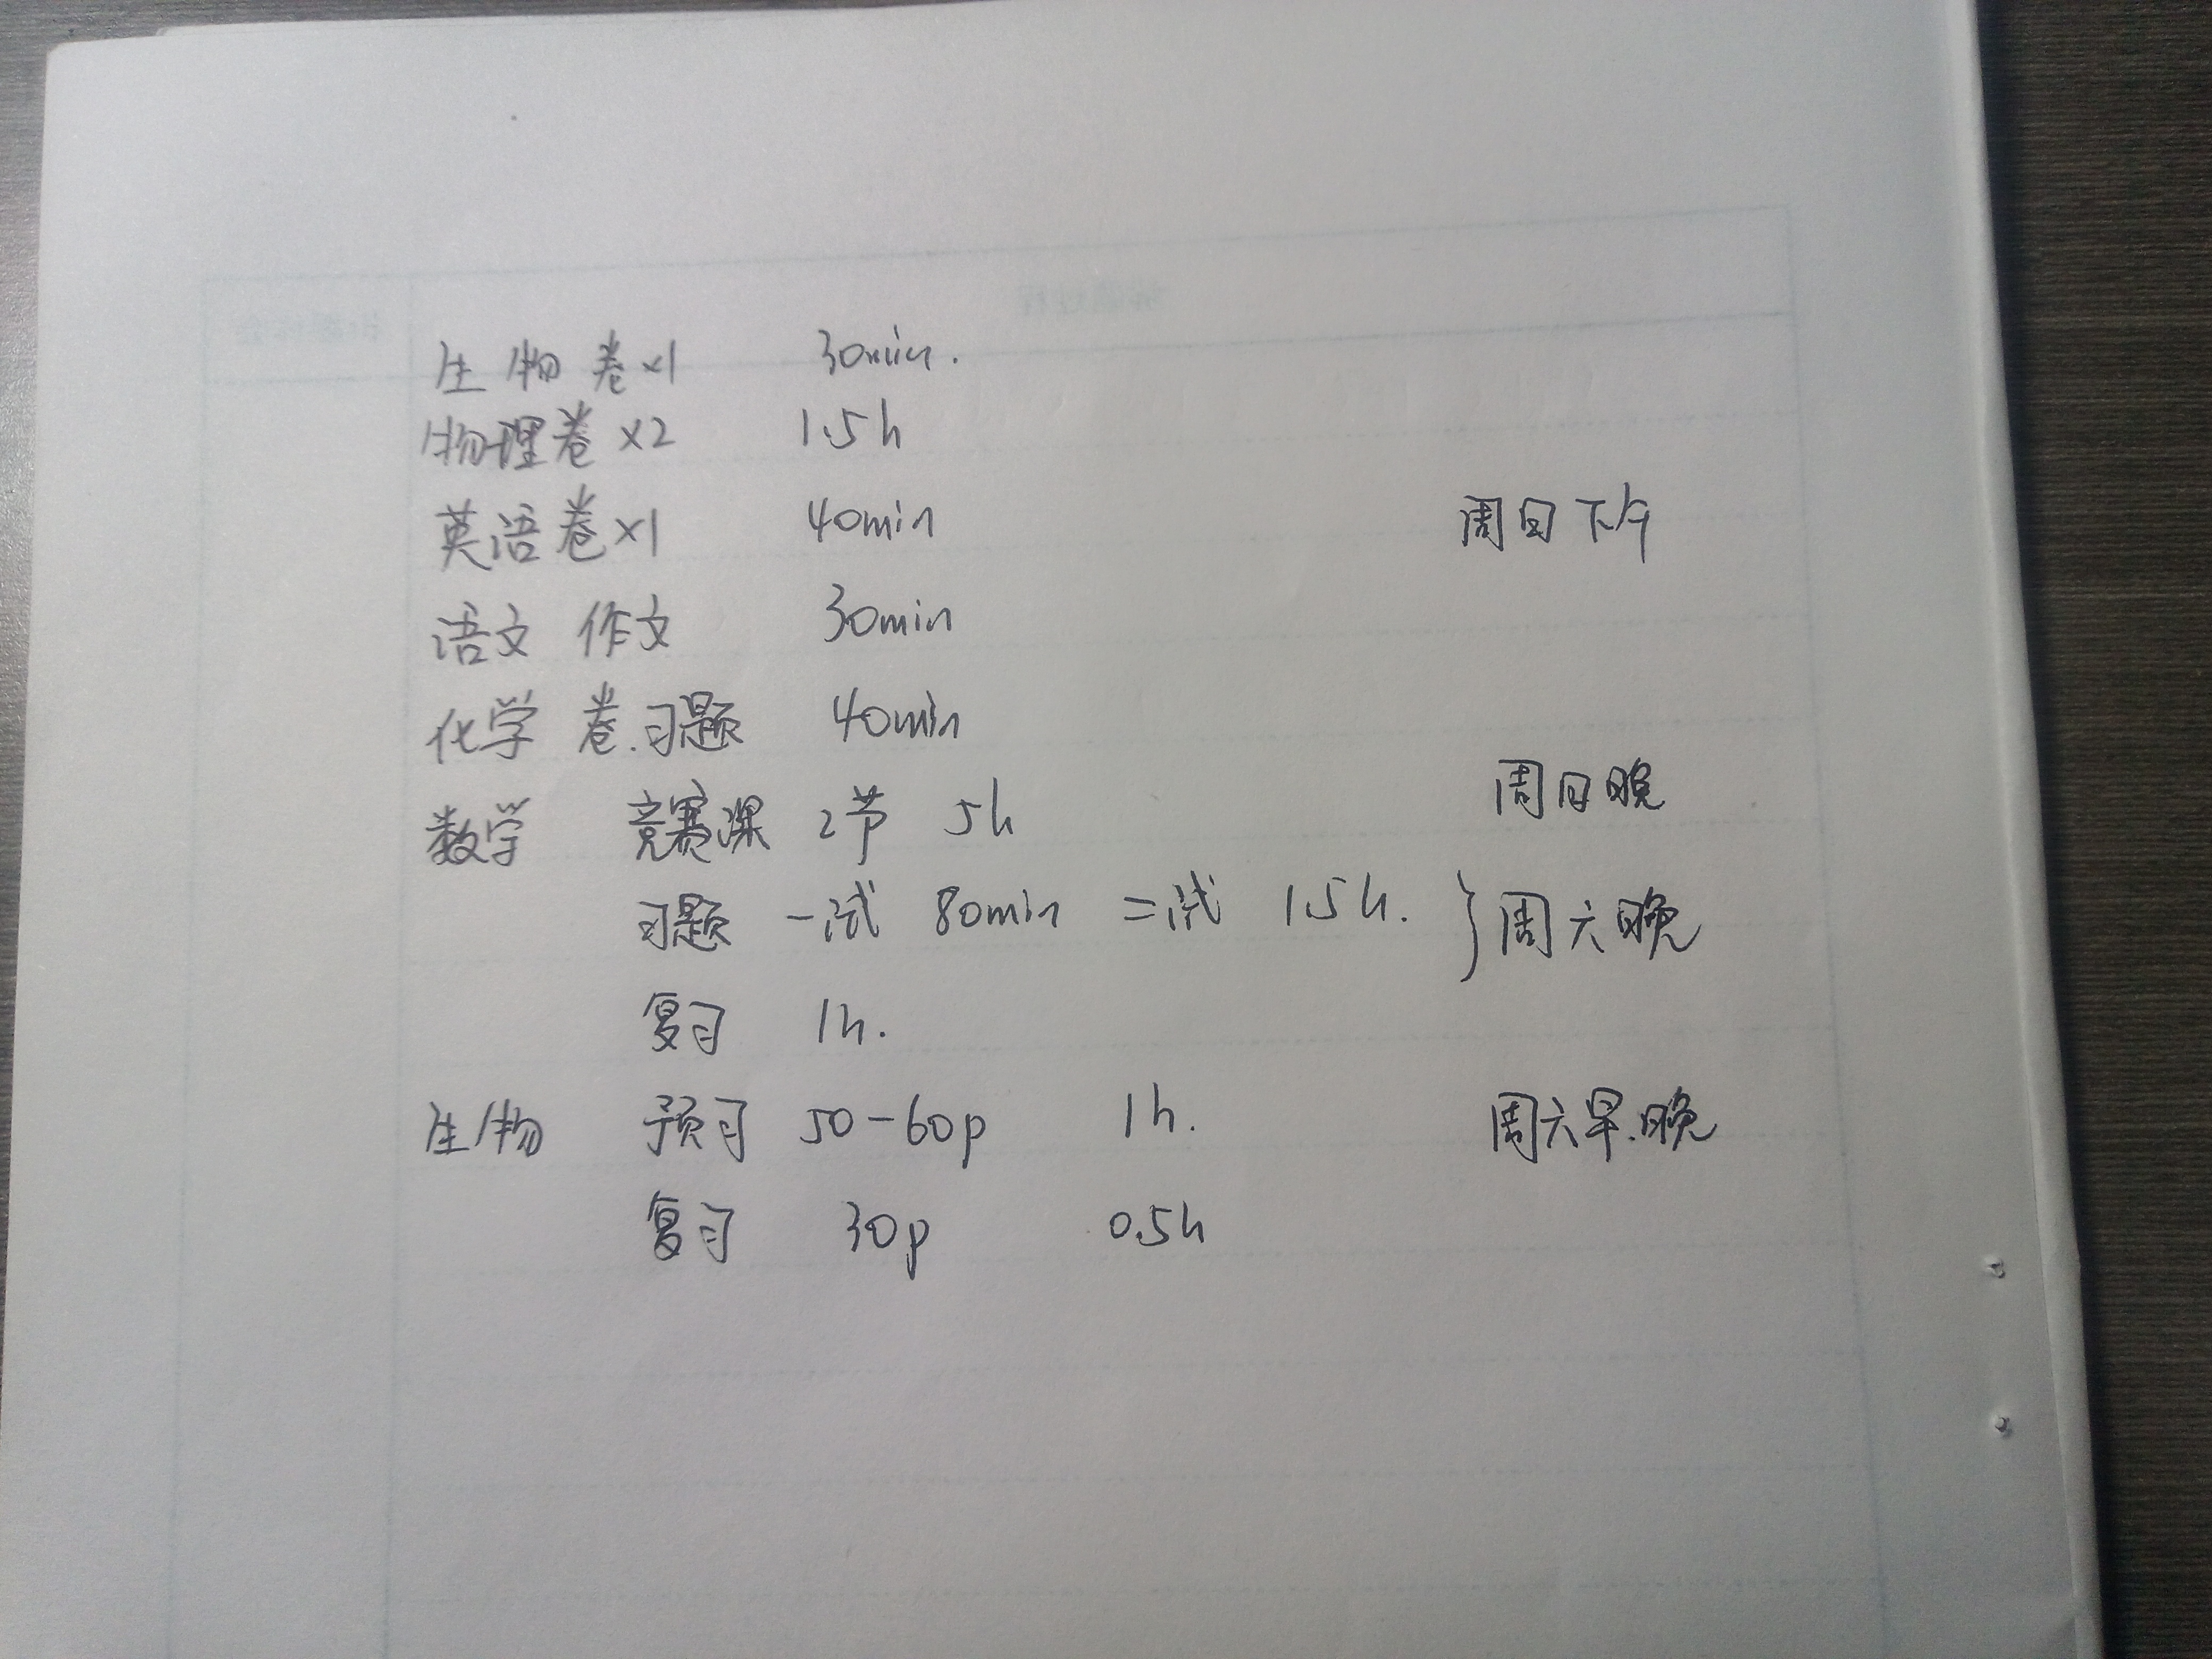 生物卷×1 30min.
物理卷×2 1.5h
英语卷×1 40min 周日下午
语文 作文 30min
化学 卷.习题 40min
数学 竞赛课 2节 5h 周日晚
习题 一试 80min 二试 1.5h. }周六晚
复习 1h.
生物 预习 50-60p 1h. 周六早.晚
复习 30p 0.5h